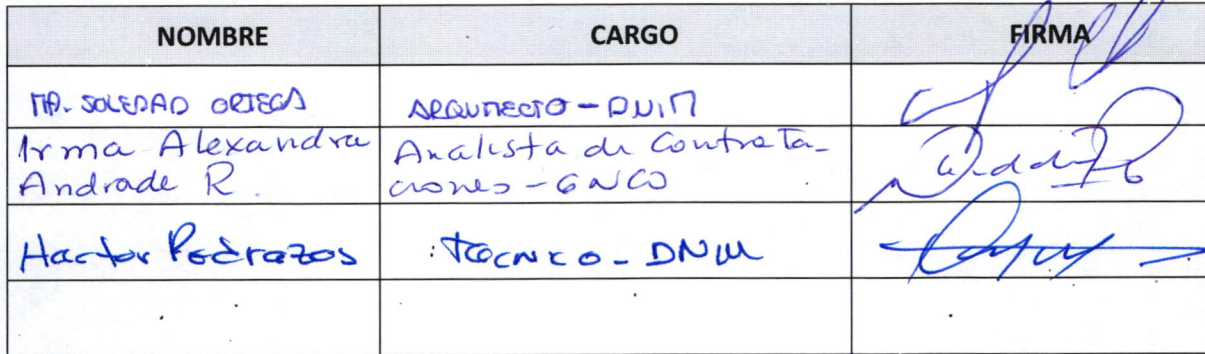 NOMBRE CARGO FIRMA
MA. SOLEDAD ORTEGA ARQUITECTO - DNIM
Irma Alexandra Analista de Contrata-
Andrade R. ciones - GNCO
Hector Pedrazos Técnico - DNIM